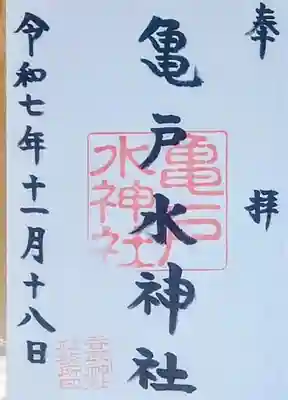 奉拝
亀戸水神社
令和七年十一月十八日
亀戸
水神社